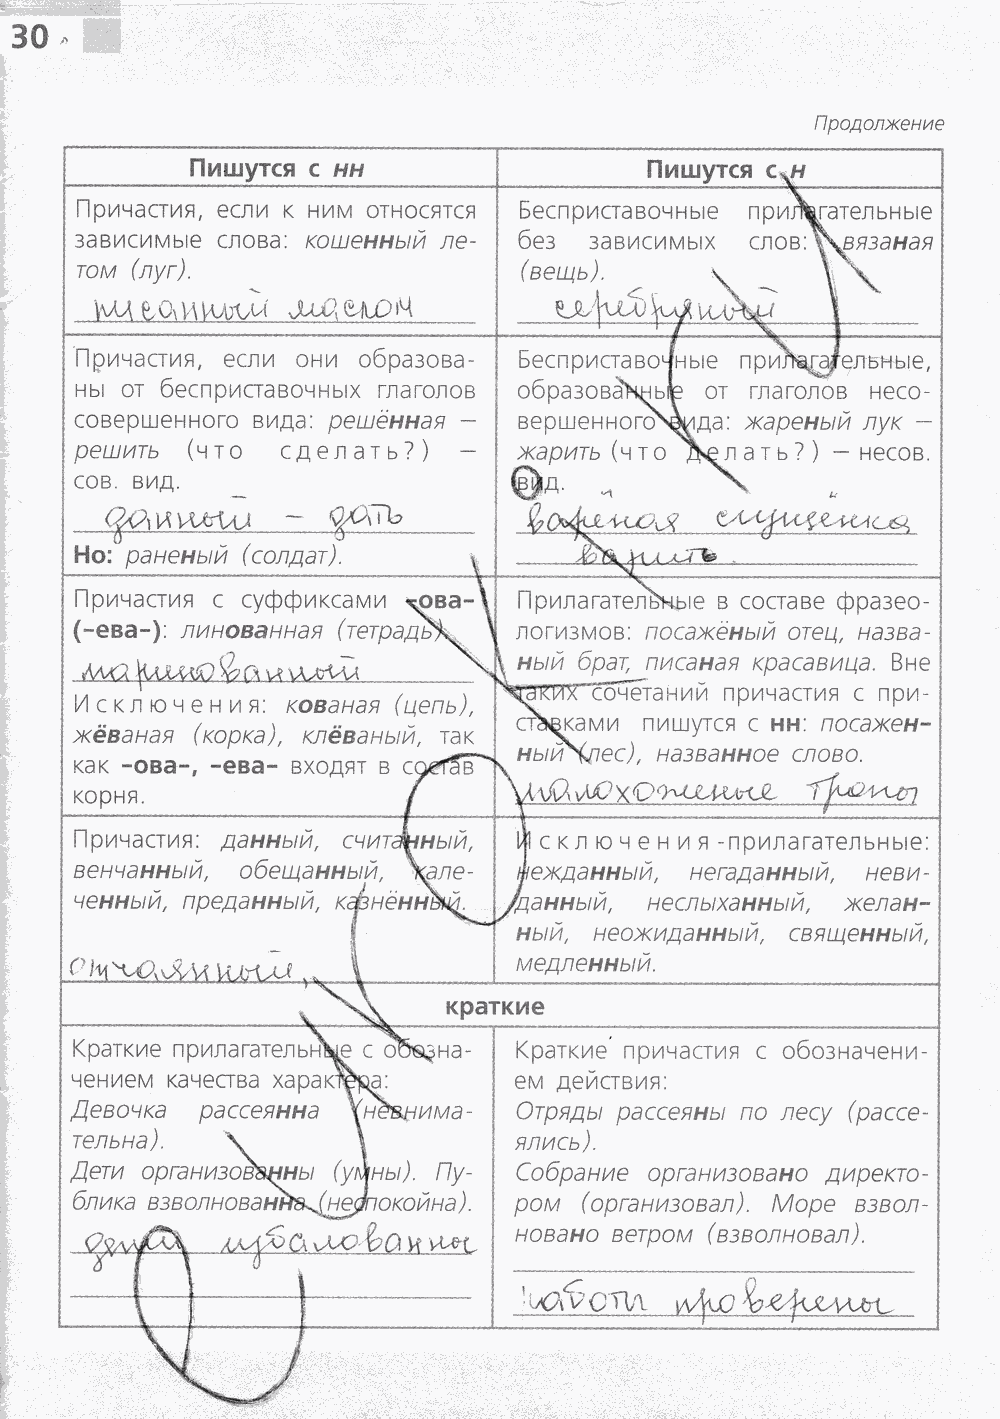 30
Продолжение
Пишутся с нн
Пишутся с н
Причастия, если к ним относятся
зависимые слова: кошенный ле-
том (луг).
писанный маслом
Бесприставочные прилагательные
без зависимых слов: вязаная
(вещь).
серебряный
Причастия, если они образова-
ны от бесприставочных глаголов
совершенного вида: решённая –
решить (что сделать?) –
сов. вид.
данный – дать
Но: раненый (солдат).
Бесприставочные прилагательные,
образованные от глаголов несо-
вершенного вида: жареный лук –
жарить (что делать?) – несов.
вид.
варёная сгущёнка
варить
Причастия с суффиксами –ова–
(–ева–): линованная (тетрадь).
маринованный
Исключения: кованая (цепь),
жёваная (корка), клёваный, так
как –ова–, –ева– входят в состав
корня.
Прилагательные в составе фразео-
логизмов: посажёный отец, назва-
ный брат, писаная красавица. Вне
таких сочетаний причастия с при-
ставками пишутся с нн: посажен-
ный (лес), названное слово.
малохоженые тропы
Причастия: данный, считанный,
венчанный, обещанный, кале-
ченный, преданный, казнённый.
отчаянный,
Исключения-прилагательные:
нежданный, негаданный, неви-
данный, неслыханный, желан-
ный, неожиданный, священный,
медленный.
краткие
Краткие прилагательные с обозна-
чением качества характера:
Девочка рассеянна (невнима-
тельна).
Дети организованны (умны). Пу-
блика взволнованна (неспокойна).
дети избалованны
Краткие причастия с обозначени-
ем действия:
Отряды рассеяны по лесу (рассе-
ялись).
Собрание организовано директо-
ром (организовал). Море взвол-
новано ветром (взволновал).
работы проверены